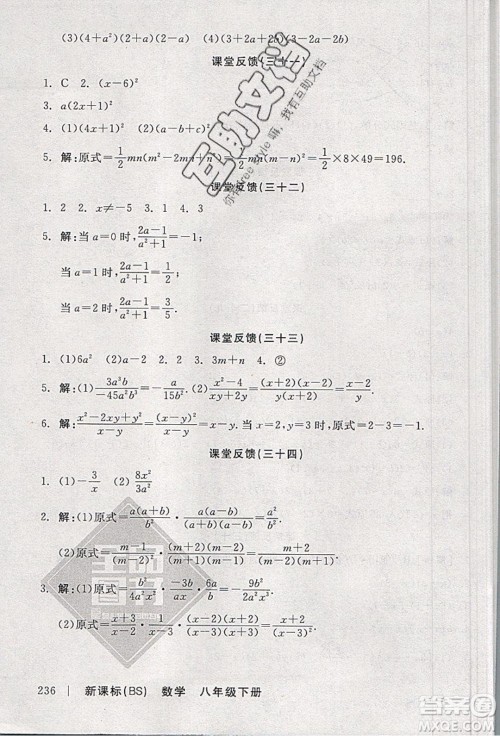 (3)(4+a²)(2+a)(2-a)　(4)(3+2a+2b)(3-2a-2b)
课堂反馈(三十一)
1. C　2. (x-6)²
3. a(2x+1)²
4. (1)(4x+1)²　(2)(a-b+c)²
5. 解:原式=1/2mn(m²-2mn+n²)=1/2mn(m-n)²=1/2×8×49=196.
课堂反馈(三十二)
1. 2　2. x≠-5　3. 1　4. 3
5. 解:当a=0时,(2a-1)/(a²+1)=-1;
当a=1时,(2a-1)/(a²+1)=1/2;
当a=2时,(2a-1)/(a²+1)=3/5.
课堂反馈(三十三)
1. (1)6a²　(2)a-2　2. 2　3. 3m+n　4. ②
5. 解:(1)3a³b/(-45a²b³)=-a/(15b²).　(2)(x²-4)/(xy+2y)=(x+2)(x-2)/(y(x+2))=(x-2)/y.
6. 解:(x²-2xy+y²)/(x-y)=(x-y)²/(x-y)=x-y.当x=1,y=2时,原式=1-2=-1.
课堂反馈(三十四)
1. (1)-3/x　(2)8b²/(3a²)
2. 解:(1)原式=a(a+b)/b²·b³/(a(a-b))=b(a+b)/(a-b).
(2)原式=(m-1)/(m-2)²·(m+2)(m-2)/((m+1)(m-1))=(m+2)/((m-2)(m+1)).
3. 解:(1)原式=b²/(4a²)·(-3b)/a·6a/b=-9b²/(2a²).
(2)原式=(x+3)/(x-1)·1/(x+3)·(x-1)/(x-2)=1/(x-2).
互助文档
嘛,我有互助文档
全品图书
236　|　新课标(BS)　数学　八年级下册
答案圈